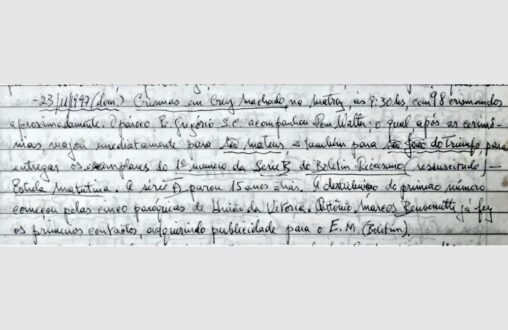 -23/11/1997 (dom.) Crismas em Cruz Machado, na matriz, às 9:30hs, com 98 crismandos
aproximadamente. O pároco, P. Gregório S.C. acompanhou Dom Walter, o qual após as cerimô-
nias viajou imediatamente para São Mateus e também para São João do Triunfo para
entregar os exemplares do 1º número da Série B do Boletim (ressuscitado)
Estrela Matutina. A série A parou 15 anos atrás. A distribuição do primeiro número
começou pelas cinco paróquias de União da Vitória. Antônio Marcos Benvenutti já fez
os primeiros contactos, adquirindo publicidade para o E.M. (Boletim).